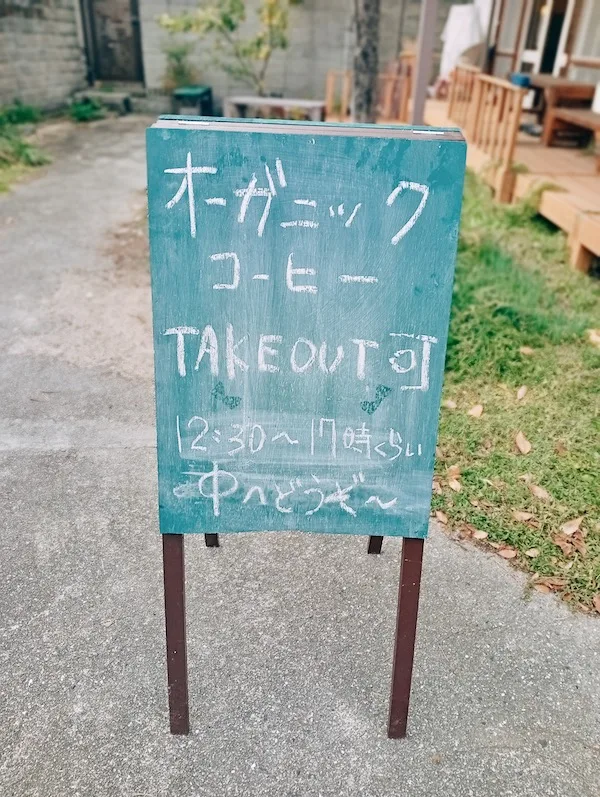 オーガニック
コーヒー
TAKEOUT可
12:30〜17時くらい
中へどうぞ〜